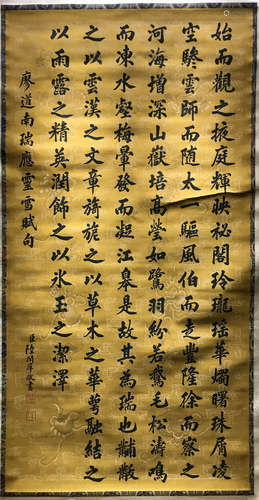 始而觀之掖庭輝映秘閣玲瓏瑤華燭曙珠屑凌
空驂雲師而随太一驅風伯而走豐隆徐而察之
河海增深山嶽培高瑩如鷺羽紛若鵞毛松濤鳴
而凍水壑梅暈發而凝江皋是故其為瑞也黼黻
之以雲漢之文章旖旎之以草木之華萼融結之
以雨露之精英潤飾之以氷玉之潔澤
廖道南瑞應靈雪賦句
臣陸潤庠